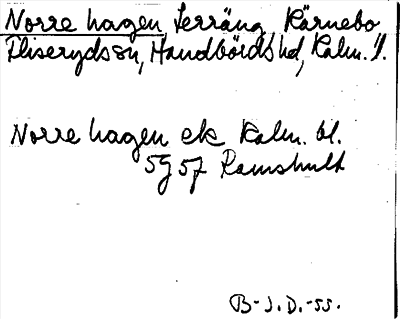 Norre hagen, terräng Kärnebo
Fliserydssn, Handbördshd, Kalm. l.
Norre hagen ek Kalm. bl.
5g 57 Ramshult
B-J.D.-55.